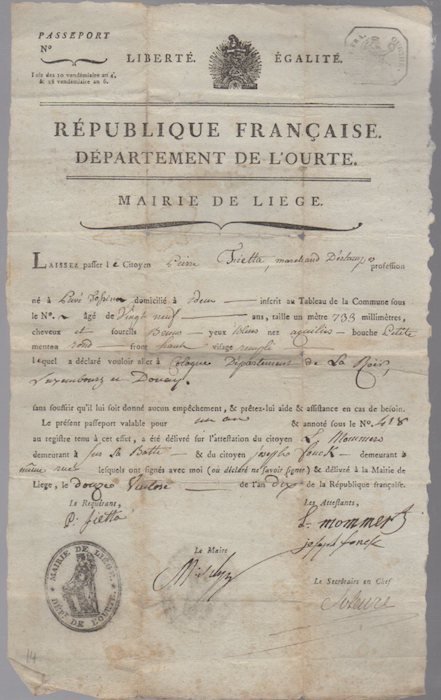 PASSEPORT
N°
Lois des 10 vendémiaire an 4,
& 28 vendémiaire an 6.
LIBERTÉ. ÉGALITÉ.
RÉPUBLIQUE FRANÇAISE.
DÉPARTEMENT DE L'OURTE.
MAIRIE DE LIEGE.
LAISSEZ passer le Citoyen Pierre Fietta, marchand D'estampes profession
né à domicilié à idem inscrit au Tableau de la Commune sous
le N°. âgé de Vingt neuf ans, taille un mètre 733 millimètres,
cheveux et sourcils Bruns yeux bleus nez aquilin bouche Petite
menton rond front haut visage rempli
lequel a déclaré vouloir aller à Cologne Département de La Roër,
Luxembourg et
sans souffrir qu'il lui soit donné aucun empêchement, & prêtez-lui aide & assistance en cas de besoin.
Le présent passeport valable pour un an & annoté sous le N°. 418
au registre tenu à cet effet, a été délivré sur l'attestation du citoyen L. Mommers
demeurant à sur la Batte & du citoyen joseph fonck demeurant à
même rue lesquels ont signés avec moi (ou déclaré ne savoir signer) & délivré à la Mairie de
Liege, le douze Ventose de l'an Dix de la République française.
Le Requérant, Les Attestants,
P. fietta L. mommers
joseph fonck
Le Maire
Le Secrétaire en Chef
MAIRIE DE LIEGE
DÉPT. DE L'OURTE
14